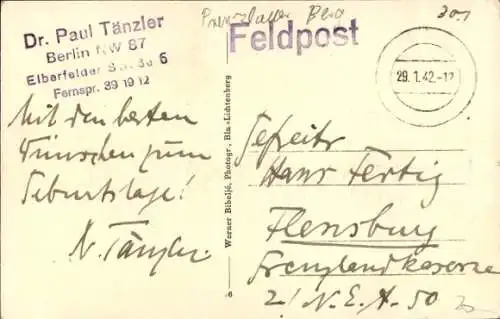 Dr. Paul Tänzler
Berlin NW 87
Elberfelder Straße 6
Fernspr. 39 19 12
Prenzlauer Berg
Feldpost
301
29.1.42.-17
Mit den besten
Wünschen zum
Geburtstage!
N. Tänzler.
Werner Bibeljé, Photogr., Bln.-Lichtenberg
6
Gefreitr
Hans Fertig
Flensburg
Grenzlandkaserne
2/ N.E.A. 50